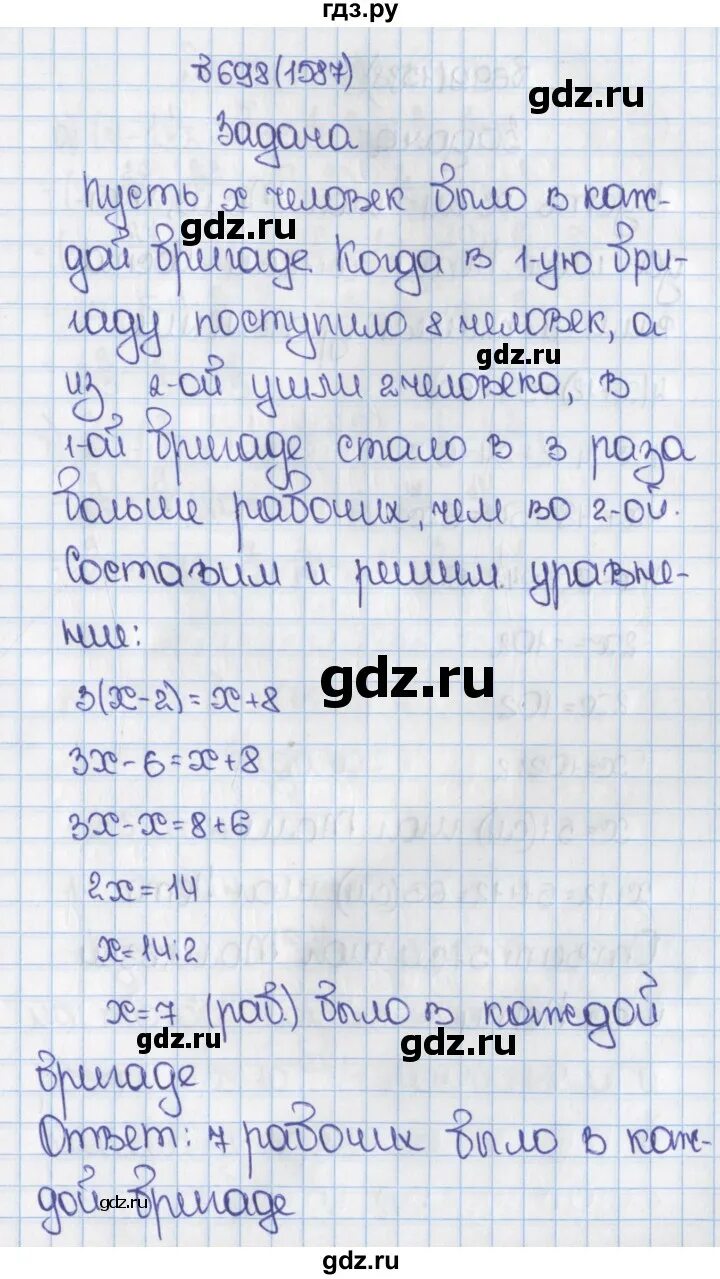 гдз.ру
в 698(1587)
gdz.ru
Задача
Пусть х человек было в каж-
gdz.ru
дой бригаде. Когда в 1-ую бри-
гаду поступило 8 человек, а
gdz.ru
из 2-ой ушли 2 человека, в
1-ой бригаде стало в 3 раза
больше рабочих, чем во 2-ой.
Составим и решим уравне-
ние:
gdz.ru
3(х-2)=х+8
3х-6=х+8
3х-х=8+6
2х=14
х=14:2
х=7 (раб.) было в каждой
gdz.ru
gdz.ru
бригаде
Ответ: 7 рабочих было в каж-
gdz.ru
дой бригаде
gdz.ru